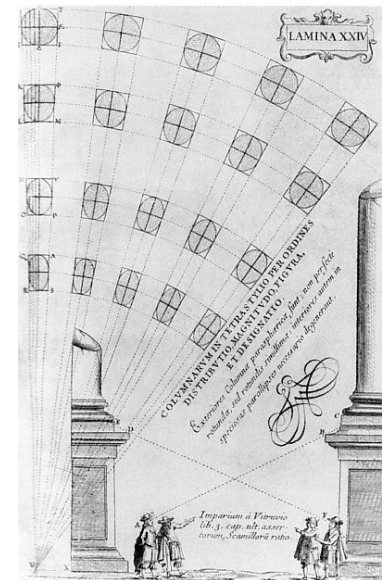 LAMINA XXIV
COLVMNARVM IN TETRASTYLIO PER ORDINES
DISTRIBVTIO, MAGNITVDO, FIGVRA,
ET DESIGNATIO.
Exteriores Columnæ parasphæricæ sunt, non perfectè
rotundæ, sed rotundis simillimæ: interiores autem in
speciosas parellipses necessario degenerant.
E
D
C
B
A
F
Imparium à Vitruvio
lib. 3. cap. ult. asser-
torum, Scamillorũ ratio.